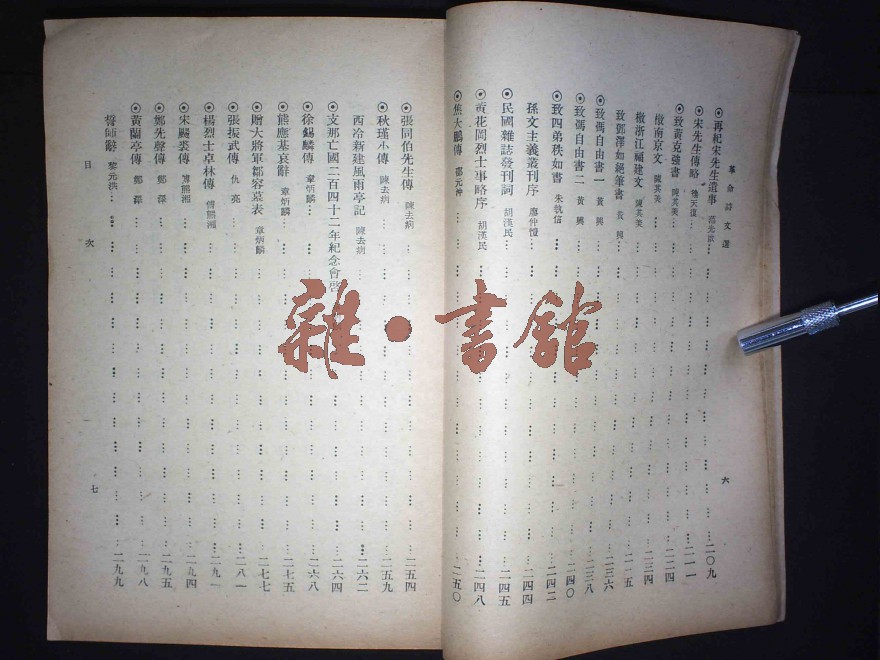 革命詩文選
六
◉再祀宋先生遺事
二〇九
◉宋先生傳略
二一一
◉致黃克強書 陳其美
二二四
檄南京文 陳其美
檄浙江福建文 陳其美
二二五
致鄧澤如絕筆書 黃興
二三六
◉致馮自由書一 黃興
二三八
◉致馮自由書二 黃興
二四〇
◉致四弟秩如書 朱執信
二四二
孫文主義叢刊序 廖仲愷
二四四
民國雜誌發刊詞 胡漢民
二四五
◉黃花岡烈士事略序 胡漢民
二四八
◉焦大鵬傳 鄒元冲
二五〇
◉張同伯先生傳 陳去病
二五四
◉秋瑾小傳 陳去病
二五九
西泠新建風雨亭記 陳去病
二六二
◉支那亡國二百四十二年紀念會啓
二六四
◉徐錫麟傳 章炳麟
二六八
◉熊應基哀辭 章炳麟
二七五
◉贈大將軍鄒容墓表 章炳麟
二七七
◉張振武傳 仇亮
二八一
◉楊烈士卓林傳 傅熊湘
二九一
◉宋颺裘傳 傅熊湘
二九四
◉鄭先聲傳
二九五
◉黃蘭亭傳
二九八
誓師辭 黎元洪
二九九
目次
七
雜·書館